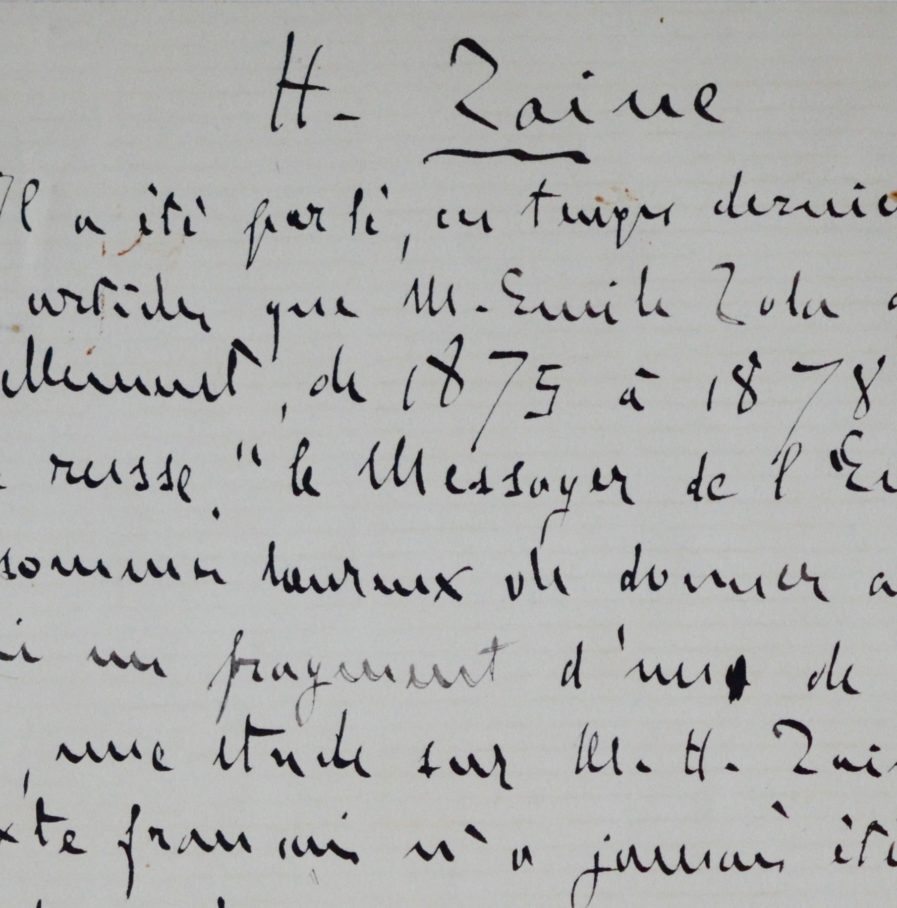 H. Taine
Il a été parlé, ces temps dernie
articles que M. Emile Zola a
ellement, de 1875 à 1878
russe, "le Messager de l'Eu
sommes heureux de donner a
un fragment d'une de
, une étude sur M. H. Tai
xte français n'a jamais été